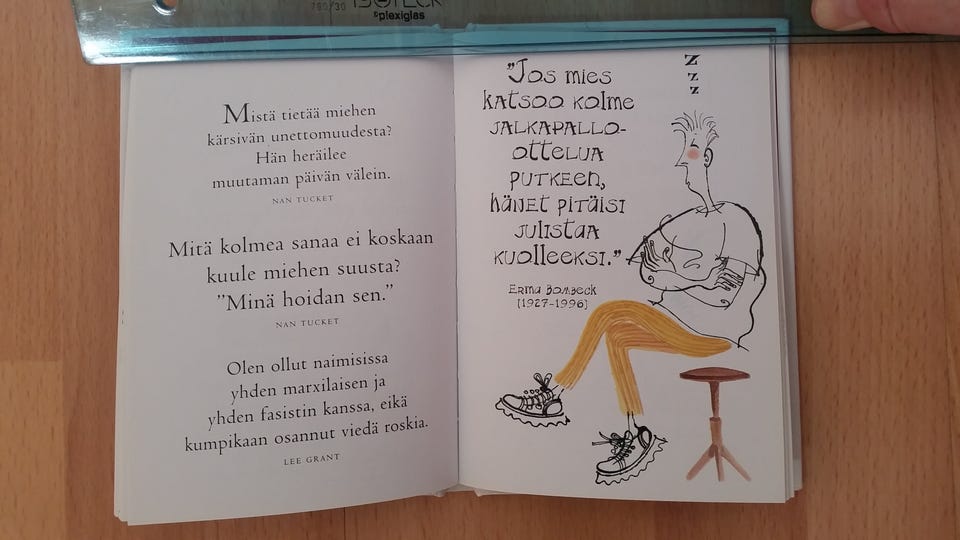 ISOTECK
plexiglas
Mistä tietää miehen
kärsivän unettomuudesta?
Hän heräilee
muutaman päivän välein.
NAN TUCKET
Mitä kolmea sanaa ei koskaan
kuule miehen suusta?
"Minä hoidan sen."
NAN TUCKET
Olen ollut naimisissa
yhden marxilaisen ja
yhden fasistin kanssa, eikä
kumpikaan osannut viedä roskia.
LEE GRANT
"Jos mies
katsoo kolme
jalkapallo-
ottelua
putkeen,
hänet pitäisi
julistaa
kuolleeksi."
Erma Bombeck
[1927-1996]
Z
Z
Z